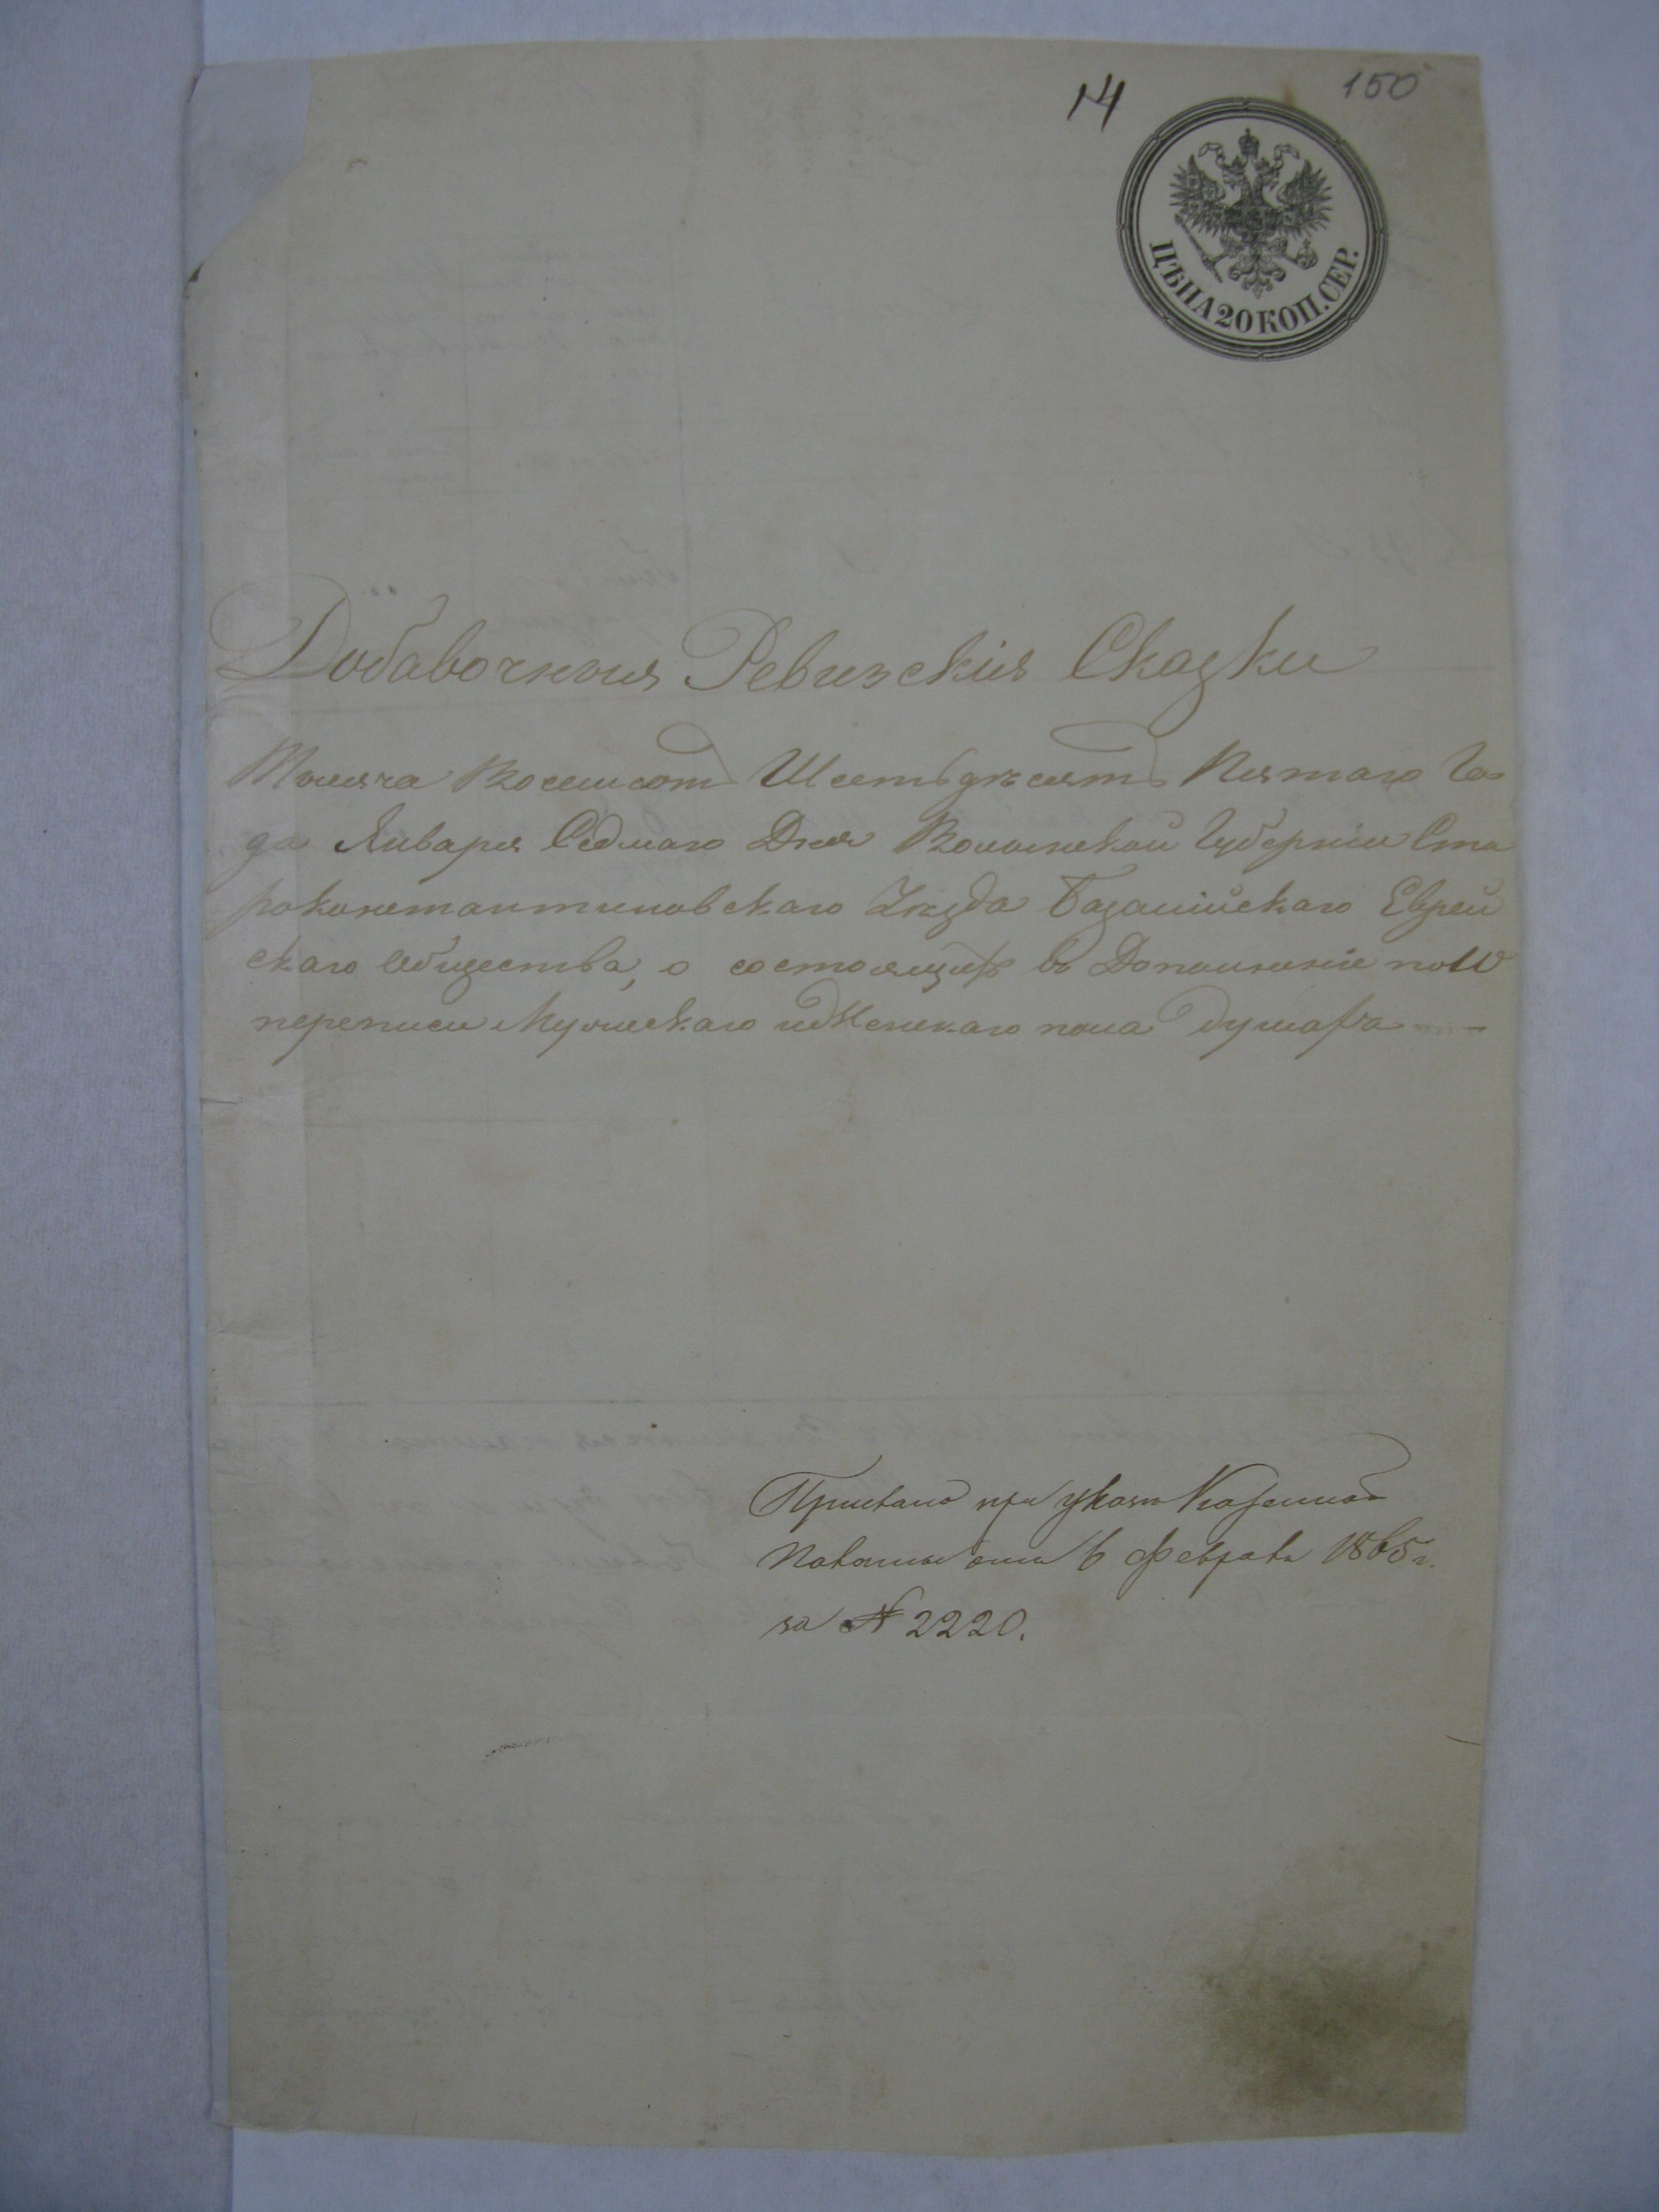 14
150
ЦѢНА 20 КОП. СЕР.
Добавочныя Ревизскія Сказки
Тысяча Восемсотъ Шестьдесятъ Пятаго Го-
да Января Седмаго Дня Волынской Губерніи Ста
роконстантиновскаго Уѣзда Базалійскаго Еврей
скаго Общества, о состоящихъ въ Дополненіе по
переписи Мужескаго и Женскаго пола душахъ
Прислано при указѣ Казенной
Палаты отъ 6 Февраля 1865 г.
за № 2220.